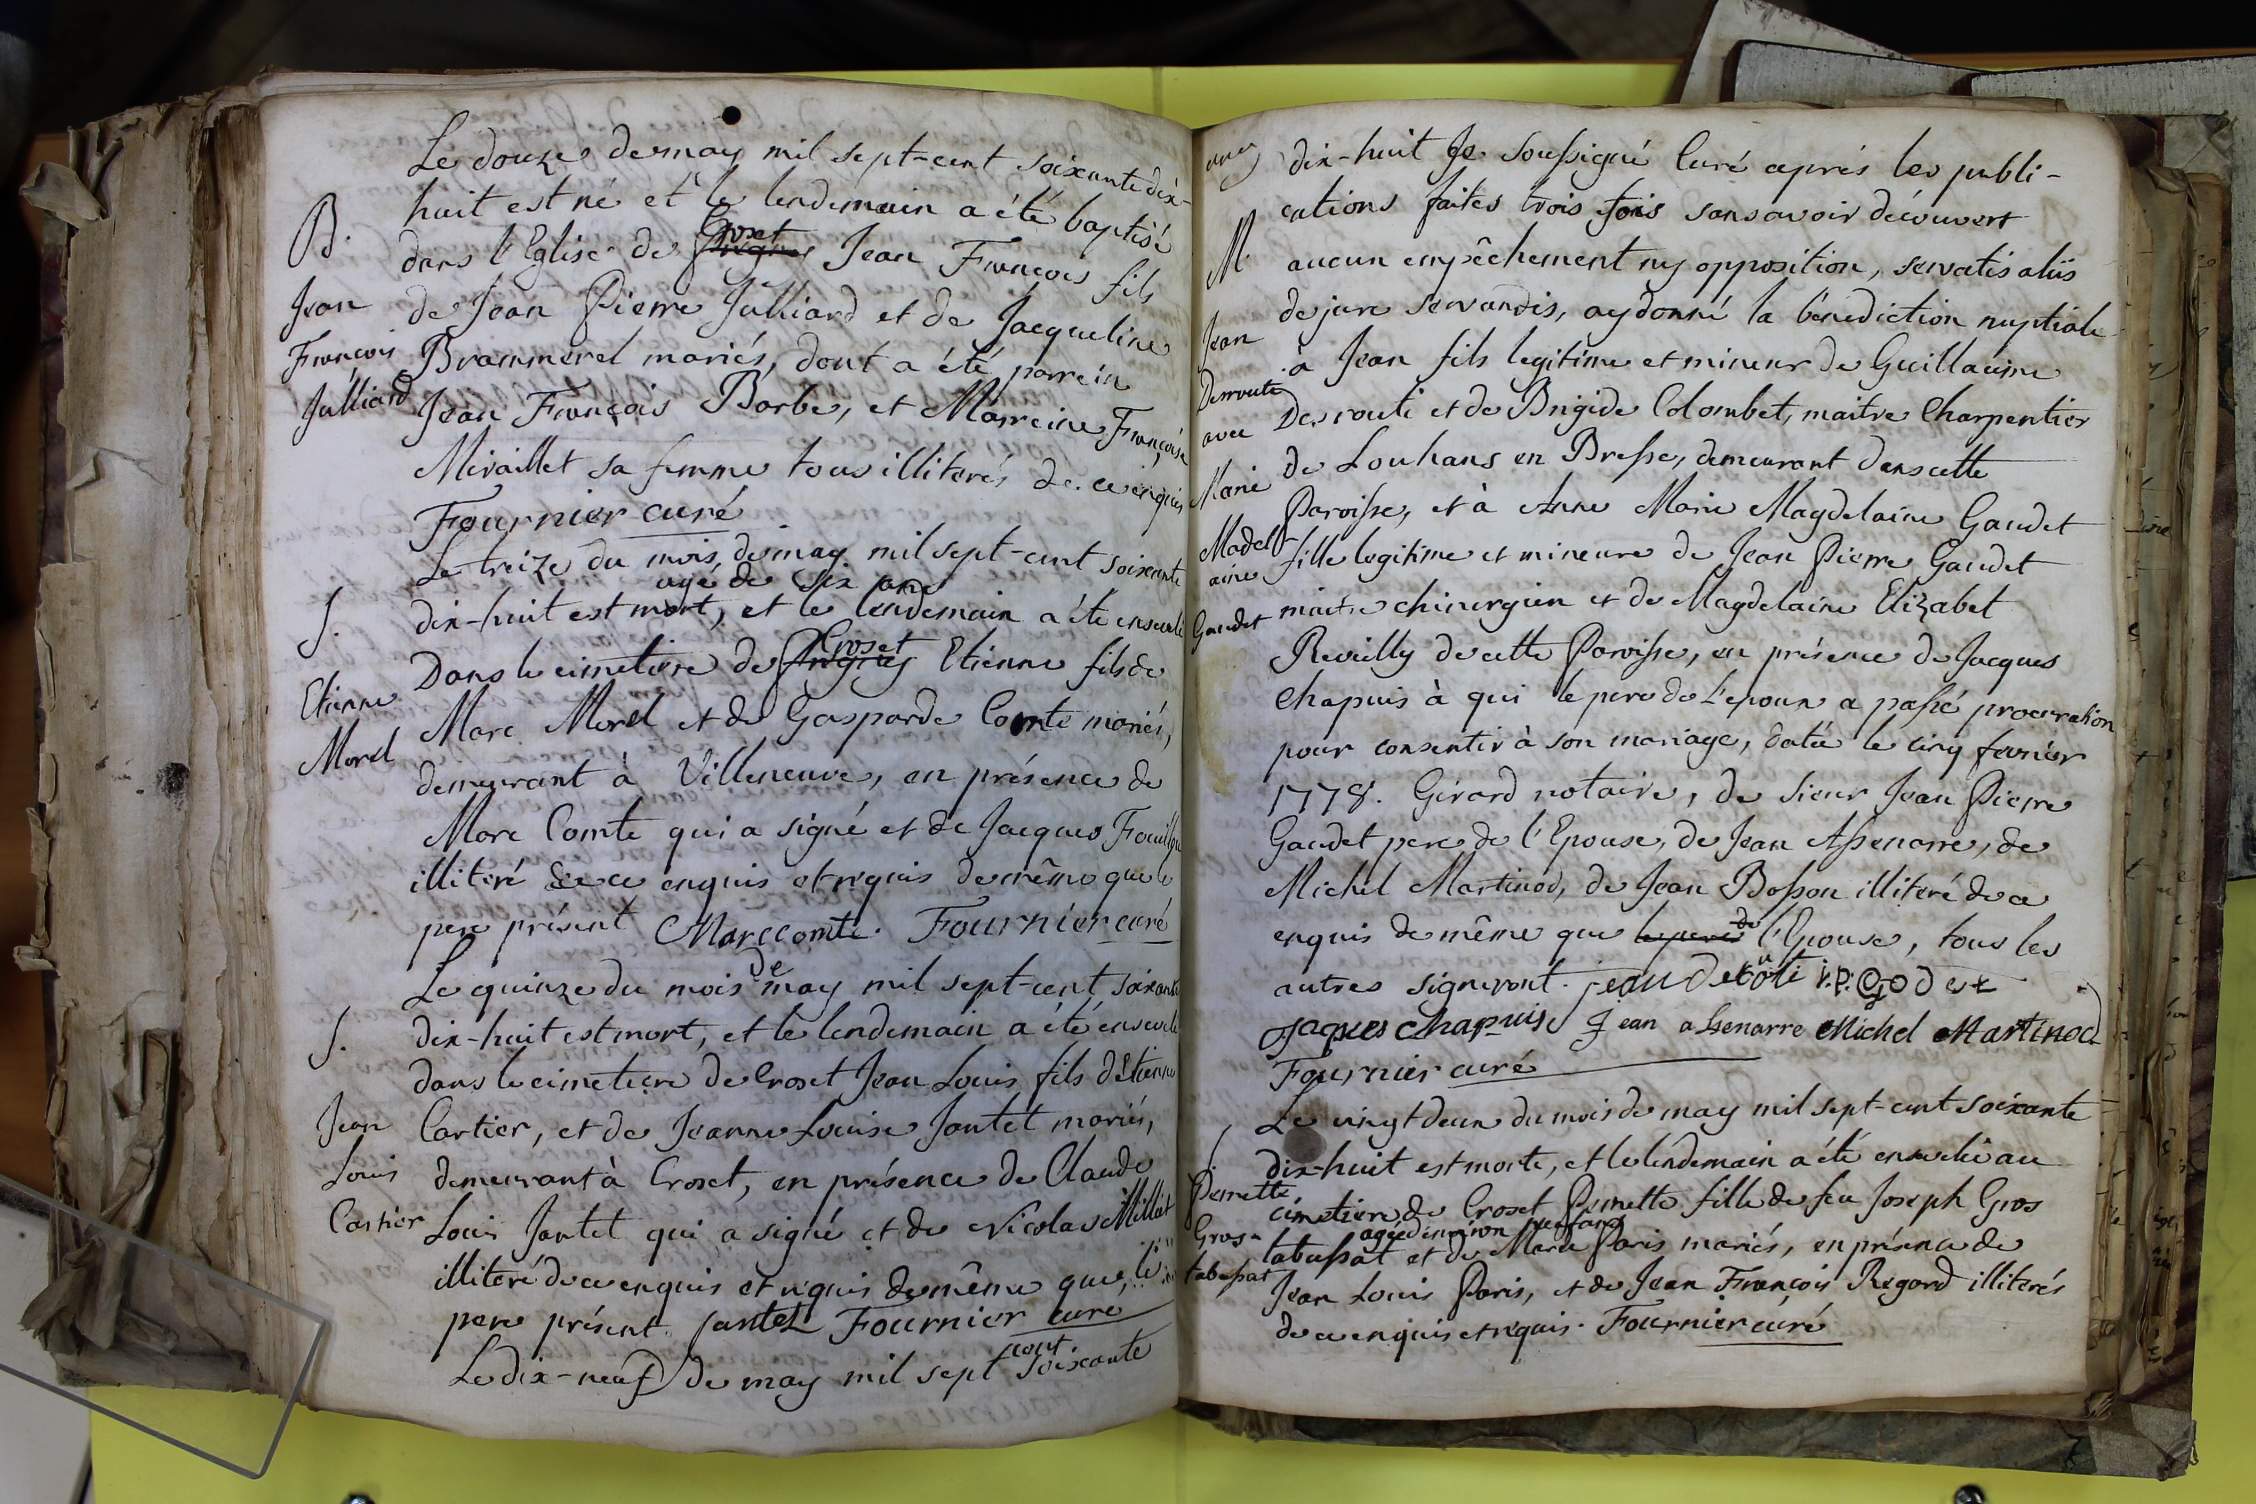 Le douze de may mil sept-cent soixante dix-
huit est né et le lendemain a été baptisé
B.
Croset
dans l'Eglise de Jean François fils
Jean
de Jean Pierre Julliard et de Jacqueline
François
Brammerel mariés, dont a été parrein
Julliard
Jean François Barbe, et Marreine Françoise
Miraillet sa femme tous illiterés de ce enquis
Fournier curé
Le treize du mois de may mil sept-cent soixante
agé de six ans
S.
dix-huit est mort, et le lendemain a été enseveli
Croset
Dans le cimetiere de Etienne fils de
Etienne
Marc Morel et de Gasparde Comte mariés,
Morel
demeurant à Villeneuve, en présence de
Marc Comte qui a signé et de Jacques
illiteré de ce enquis et requis de même que le
pere présent Marc comte. Fournier curé
de
Le quinze du mois may mil sept-cent soixante
S.
dix-huit est mort, et le lendemain a été enseveli
dans le cimetiere de Croset Jean Louis fils d'Etienne
Jean
Cartier, et de Jeanne Louise Jantet mariés,
Louis
demeurant à Croset, en présence de Claude
Cartier
Louis Jantet qui a signé et de Nicolas Millat
illiteré de ce enquis et requis de même que le
pere présent. Jantet Fournier curé
cent
Le dix-neuf de may mil sept soixante
dix-huit Je soussigné Curé aprés les publi-
cations faites trois fois sans avoir découvert
M.
aucun empêchement ny opposition, servatis aliis
de jure servandis, ay donné la bénédiction nuptiale
Jean
à Jean fils legitime et mineur de Guillaume
Derroute
Derrouti et de Brigide Colombet, maitre Charpentier
avec
de Louhans en Bresse, demeurant dans cette
Marie
Paroisse, et à Anne Marie Magdelaine Gaudet
Madel-
fille legitime et mineure de Jean Pierre Gaudet
aine
maitre chirurgien et de Magdelaine Elizabet
Gaudet
Revilly de cette Paroisse, en présence de Jacques
Chapuis à qui le pere de L'epoux a passé procuration
pour consentir à son mariage, datée le cinq fevrier
1778. Girard notaire, de Sieur Jean Pierre
Gaudet pere de l'Epouse, de Jean Assenarre, de
Michel Martinod, de Jean Bosson illiteré de ce
enquis de même que le pere de l'Epouse, tous les
autres signeront. jean de routi J.P. Godet
Jaques Chapuis Jean assenarre Michel Martinod
Fournier curé
Le vingt deux du mois de may mil sept-cent soixante
S.
dix-huit est morte, et le lendemain a été ensevelie au
Pernette
cimetiere de Croset Pernette fille de feu Joseph Gros
agée d'environ neuf ans
Gros-
tabussat et de Marie Paris mariés, en présence de
tabussat
Jean Louis Paris, et de Jean François Regard illiterés
de ce enquis et requis. Fournier curé